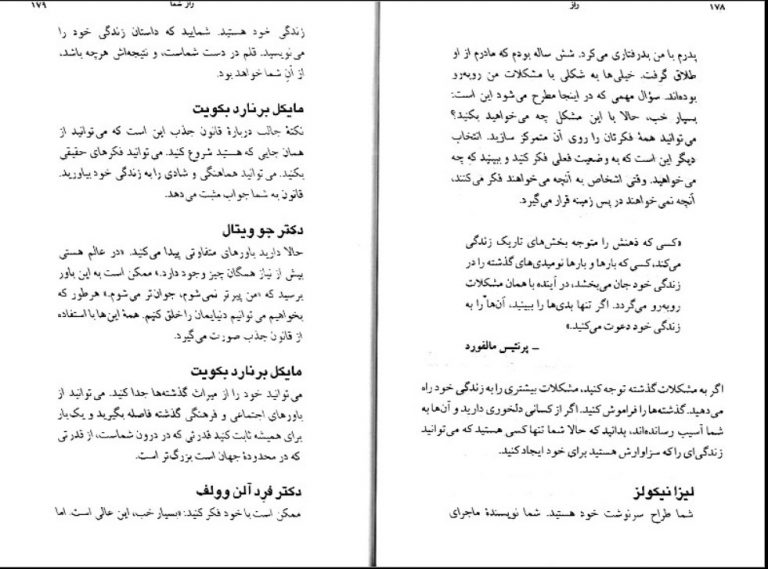 ۱۷۸
راز
پدرم با من بدرفتاری می‌کرد. شش ساله بودم که مادرم از او
طلاق گرفت. خیلی‌ها به شکلی با مشکلات من روبه‌رو
بوده‌اند. سؤال مهمی که در اینجا مطرح می‌شود این است:
بسیار خب، حالا با این مشکل چه می‌خواهید بکنید؟
می‌توانید همهٔ فکرتان را روی آن متمرکز سازید. انتخاب
دیگر این است که به وضعیت فعلی فکر کنید و ببینید که چه
می‌خواهید. وقتی اشخاص به آنچه می‌خواهند فکر می‌کنند،
آنچه نمی‌خواهند در پس زمینه قرار می‌گیرد.
«کسی که ذهنش را متوجه بخش‌های تاریک زندگی
می‌کند، کسی که بارها و بارها نومیدی‌های گذشته را در
زندگی خود جان می‌بخشد، در آینده با همان مشکلات
روبه‌رو می‌گردد. اگر تنها بدی‌ها را ببینید، آن‌ها را به
زندگی خود دعوت می‌کنید.»
ـ پرنتیس مالفورد
اگر به مشکلات گذشته توجه کنید، مشکلات بیشتری را به زندگی خود راه
می‌دهید. گذشته‌ها را فراموش کنید. اگر از کسانی دلخوری دارید و آن‌ها به
شما آسیب رسانده‌اند، بدانید که حالا شما تنها کسی هستید که می‌توانید
زندگی‌ای را که سزاوارش هستید برای خود ایجاد کنید.
لیزا نیکولز
شما طراح سرنوشت خود هستید. شما نویسندهٔ ماجرای
راز شما
۱۷۹
زندگی خود هستید. شمایید که داستان زندگی خود را
می‌نویسید. قلم در دست شماست، و نتیجه‌اش هرچه باشد،
از آنِ شما خواهد بود.
مایکل برنارد بکویت
نکتهٔ جالب دربارهٔ قانون جذب این است که می‌توانید از
همان جایی که هستید شروع کنید. می‌توانید فکرهای حقیقی
بکنید. می‌توانید هماهنگی و شادی را به زندگی خود بیاورید.
قانون به شما جواب مثبت می‌دهد.
دکتر جو ویتال
حالا دارید باورهای متفاوتی پیدا می‌کنید. «در عالم هستی
بیش از نیاز همگان چیز وجود دارد.» ممکن است به این باور
برسید که «من پیرتر نمی‌شوم، جوان‌تر می‌شوم.» هرطور که
بخواهیم می‌توانیم دنیایمان را خلق کنیم. همهٔ این‌ها با استفاده
از قانون جذب صورت می‌گیرد.
مایکل برنارد بکویت
می‌توانید خود را از میراث گذشته‌ها جدا کنید. می‌توانید از
باورهای اجتماعی و فرهنگی گذشته فاصله بگیرید و یک‌بار
برای همیشه ثابت کنید قدرتی که در درون شماست، از قدرتی
که در محدودهٔ جهان است بزرگ‌تر است.
دکتر فرِد آلن وولف
ممکن است با خود فکر کنید: «بسیار خب، این عالی است. اما